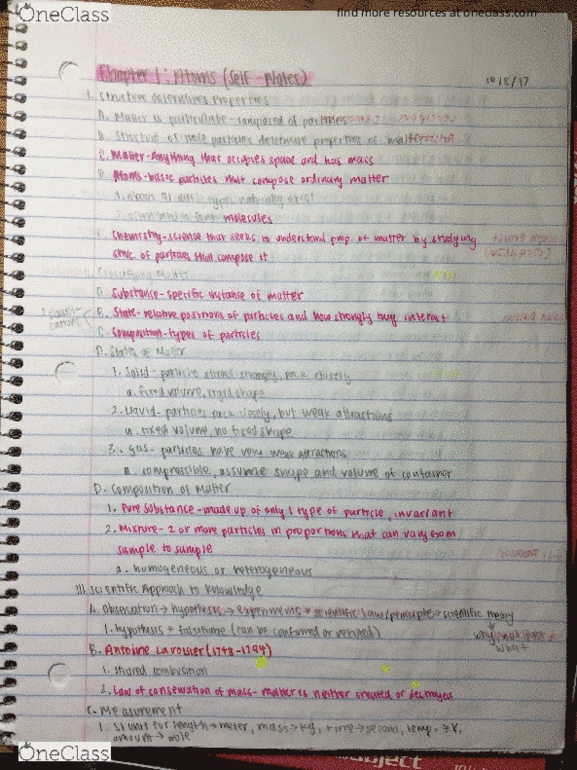 OneClass
find more resources at oneclass.com
Chapter 1: Atoms (Self-Notes)
10/8/17
I. Structure determines Properties
A. Matter is particulate - composed of particles
B. Structure of those particles determine properties of matter
C. Matter-Anything that occupies space and has mass
D. Atoms-basic particles that compose ordinary matter
1. about 91 diff. types naturally exist
molecules
E. Chemistry-science that seeks to understand prop. of matter by studying
struc. of particles that compose it
II. Classifying Matter
A. Substance-specific instance of matter
B. State-relative positions of particles and how strongly they interact
C. Composition-types of particles
D. States of Matter
1. Solid - particles attract strongly, pack closely
a. fixed volume, rigid shape
2. Liquid - particles pack closely, but weak attractions
a. fixed volume, no fixed shape
3. Gas - particles have very weak attractions
a. compressible, assume shape and volume of container
D. Composition of Matter
1. Pure Substance-made up of only 1 type of particle, invariant
2. Mixture-2 or more particles in proportions that can vary from
sample to sample
a. homogeneous or heterogeneous
III. Scientific Approach to Knowledge
A. Observation → hypothesis → experiments → scientific law/principle → scientific theory
1. hypothesis → falsifiable (can be confirmed or refuted)
why
what
B. Antoine Lavoisier (1743-1794)
1. studied combustion
2. Law of conservation of mass-matter is neither created or destroyed
C. Measurement
1. SI unit for length → meter, mass → kg, time → second, temp. → K,
amount → mole
OneClass